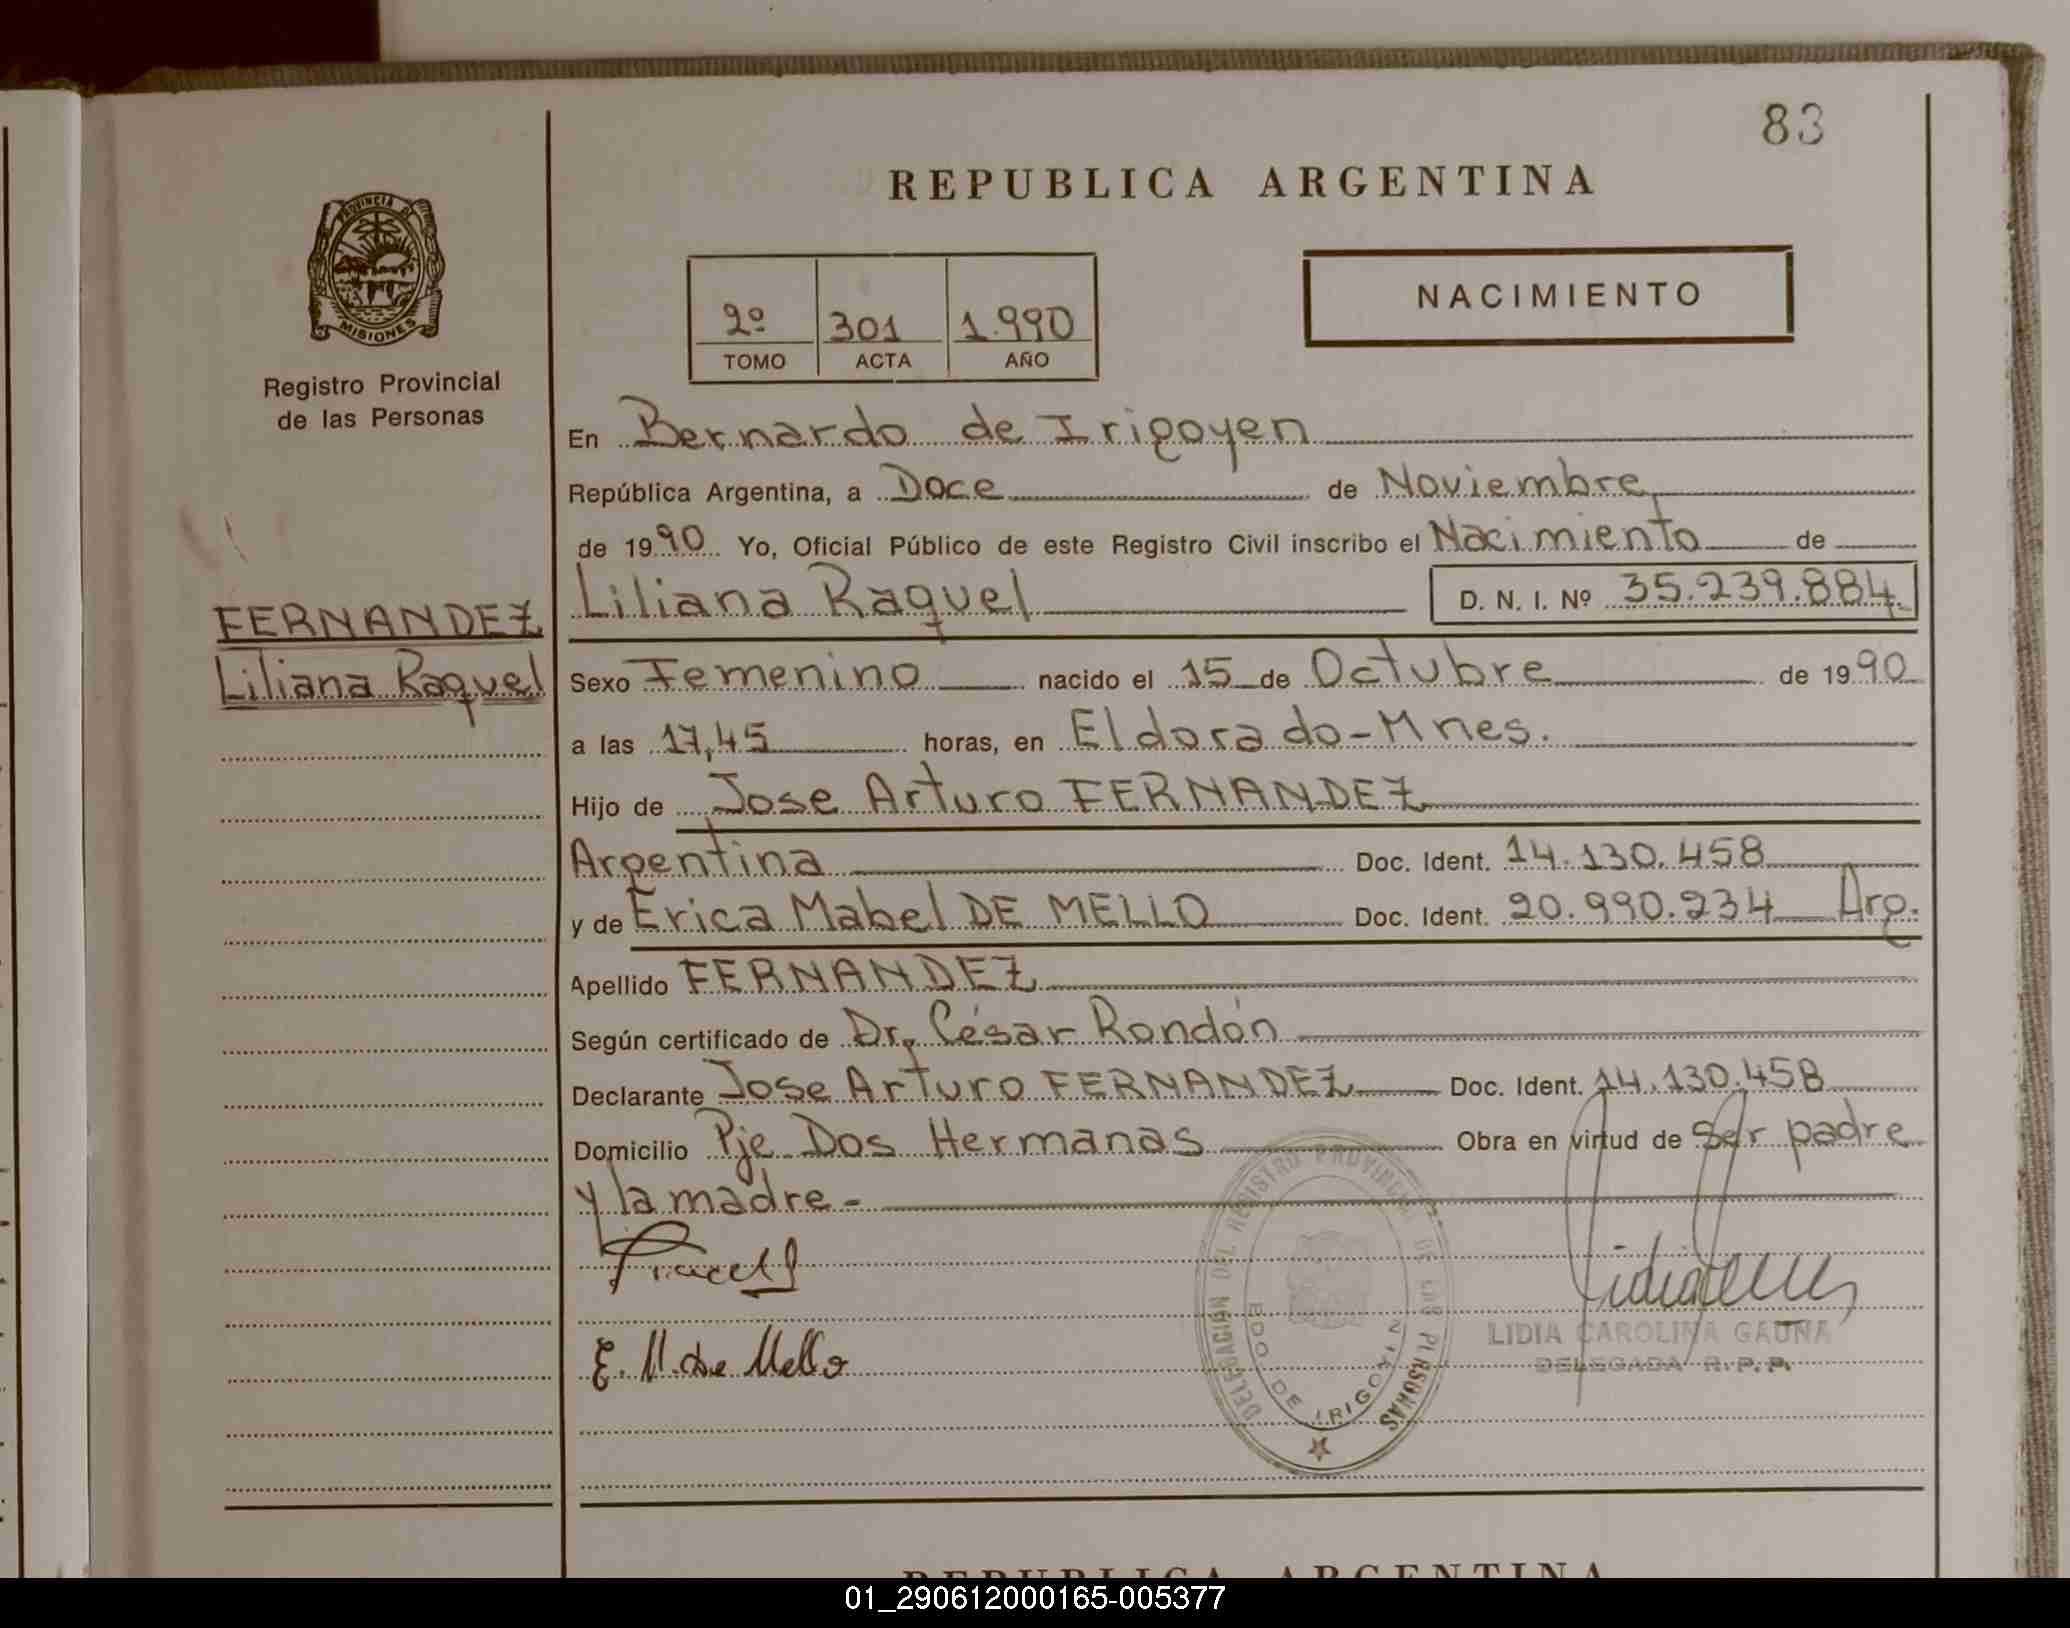 83
REPUBLICA ARGENTINA
PROVINCIA DE
MISIONES
Registro Provincial
de las Personas
2º 301 1.990
TOMO ACTA AÑO
NACIMIENTO
En Bernardo de Irigoyen
República Argentina, a Doce de Noviembre
de 1990 Yo, Oficial Público de este Registro Civil inscribo el Nacimiento de
Liliana Raquel D. N. I. Nº 35.239.884.
FERNANDEZ
Liliana Raquel
Sexo Femenino nacido el 15 de Octubre de 1990
a las 17,45 horas, en Eldorado-Mnes.
Hijo de Jose Arturo FERNANDEZ
Argentina Doc. Ident. 14.130.458
y de Erica Mabel DE MELLO Doc. Ident. 20.990.234 Arg.
Apellido FERNANDEZ
Según certificado de Dr. César Rondón
Declarante Jose Arturo FERNANDEZ Doc. Ident. 14.130.458
Domicilio Pje Dos Hermanas Obra en virtud de Ser padre
y la madre-
E. M. de Mello
DELEGACIÓN DEL REGISTRO PROVINCIAL DE LAS PERSONAS
BDO DE IRIGOYEN
LIDIA CAROLINA GAUNA
DELEGADA R.P.P.
REPUBLICA ARGENTINA
01_290612000165-005377